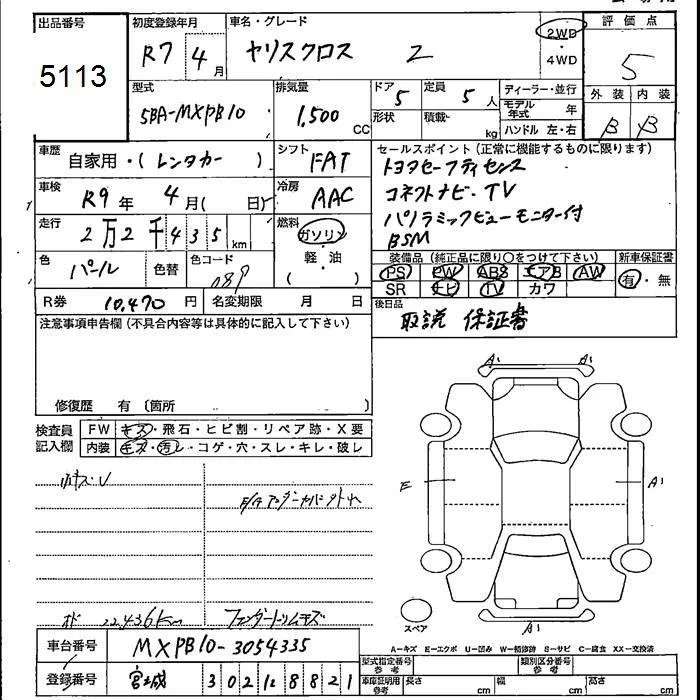 出品番号 初度登録年月 車名・グレード 評価点
5113
R7 4月 ヤリスクロス Z 2WD・4WD 5
型式 排気量 ドア 定員 ディーラー・並行 外装 内装
5BA-MXPB10 1,500 CC 5 5人 モデル年式 年 B B
形状 積載 kg ハンドル 左・右
車歴 自家用・(レンタカー) シフト FAT セールスポイント(正常に機能するものに限ります)
トヨタセーフティセンス
車検 R9年 4月(日) 冷房 AAC コネクトナビ・TV
走行 2万2千435km 燃料 ガソリン・軽・油 ( ) パノラミックビューモニター付
BSM
色 パール 色替 色コード 089 装備品(純正品に限り○をつけて下さい) 新車保証書
PS PW ABS エアB AW 有・無
SR ナビ TV カワ
R券 10,470円 名変期限 月 日 後日品
取説 保証書
注意事項申告欄(不具合内容等は具体的に記入して下さい)
修復歴 有 〔箇所 〕
検査員記入欄 FW キズ・飛石・ヒビ割・リペア跡・X要
内装 キズ・汚レ・コゲ・穴・スレ・キレ・破レ
A1 A1
E A1
F/Gアンダーカバー外れ
22,436km
スペア A1
A-キズ E-エクボ U-凹み W-補修跡 S-サビ C-腐食 XX-交換済
車台番号 MXPB10-3054335
型式指定番号 参考 類別区分番号 参考
登録番号 宮城 302 8821
車庫証明用参考 長さ cm 幅 cm 高さ cm